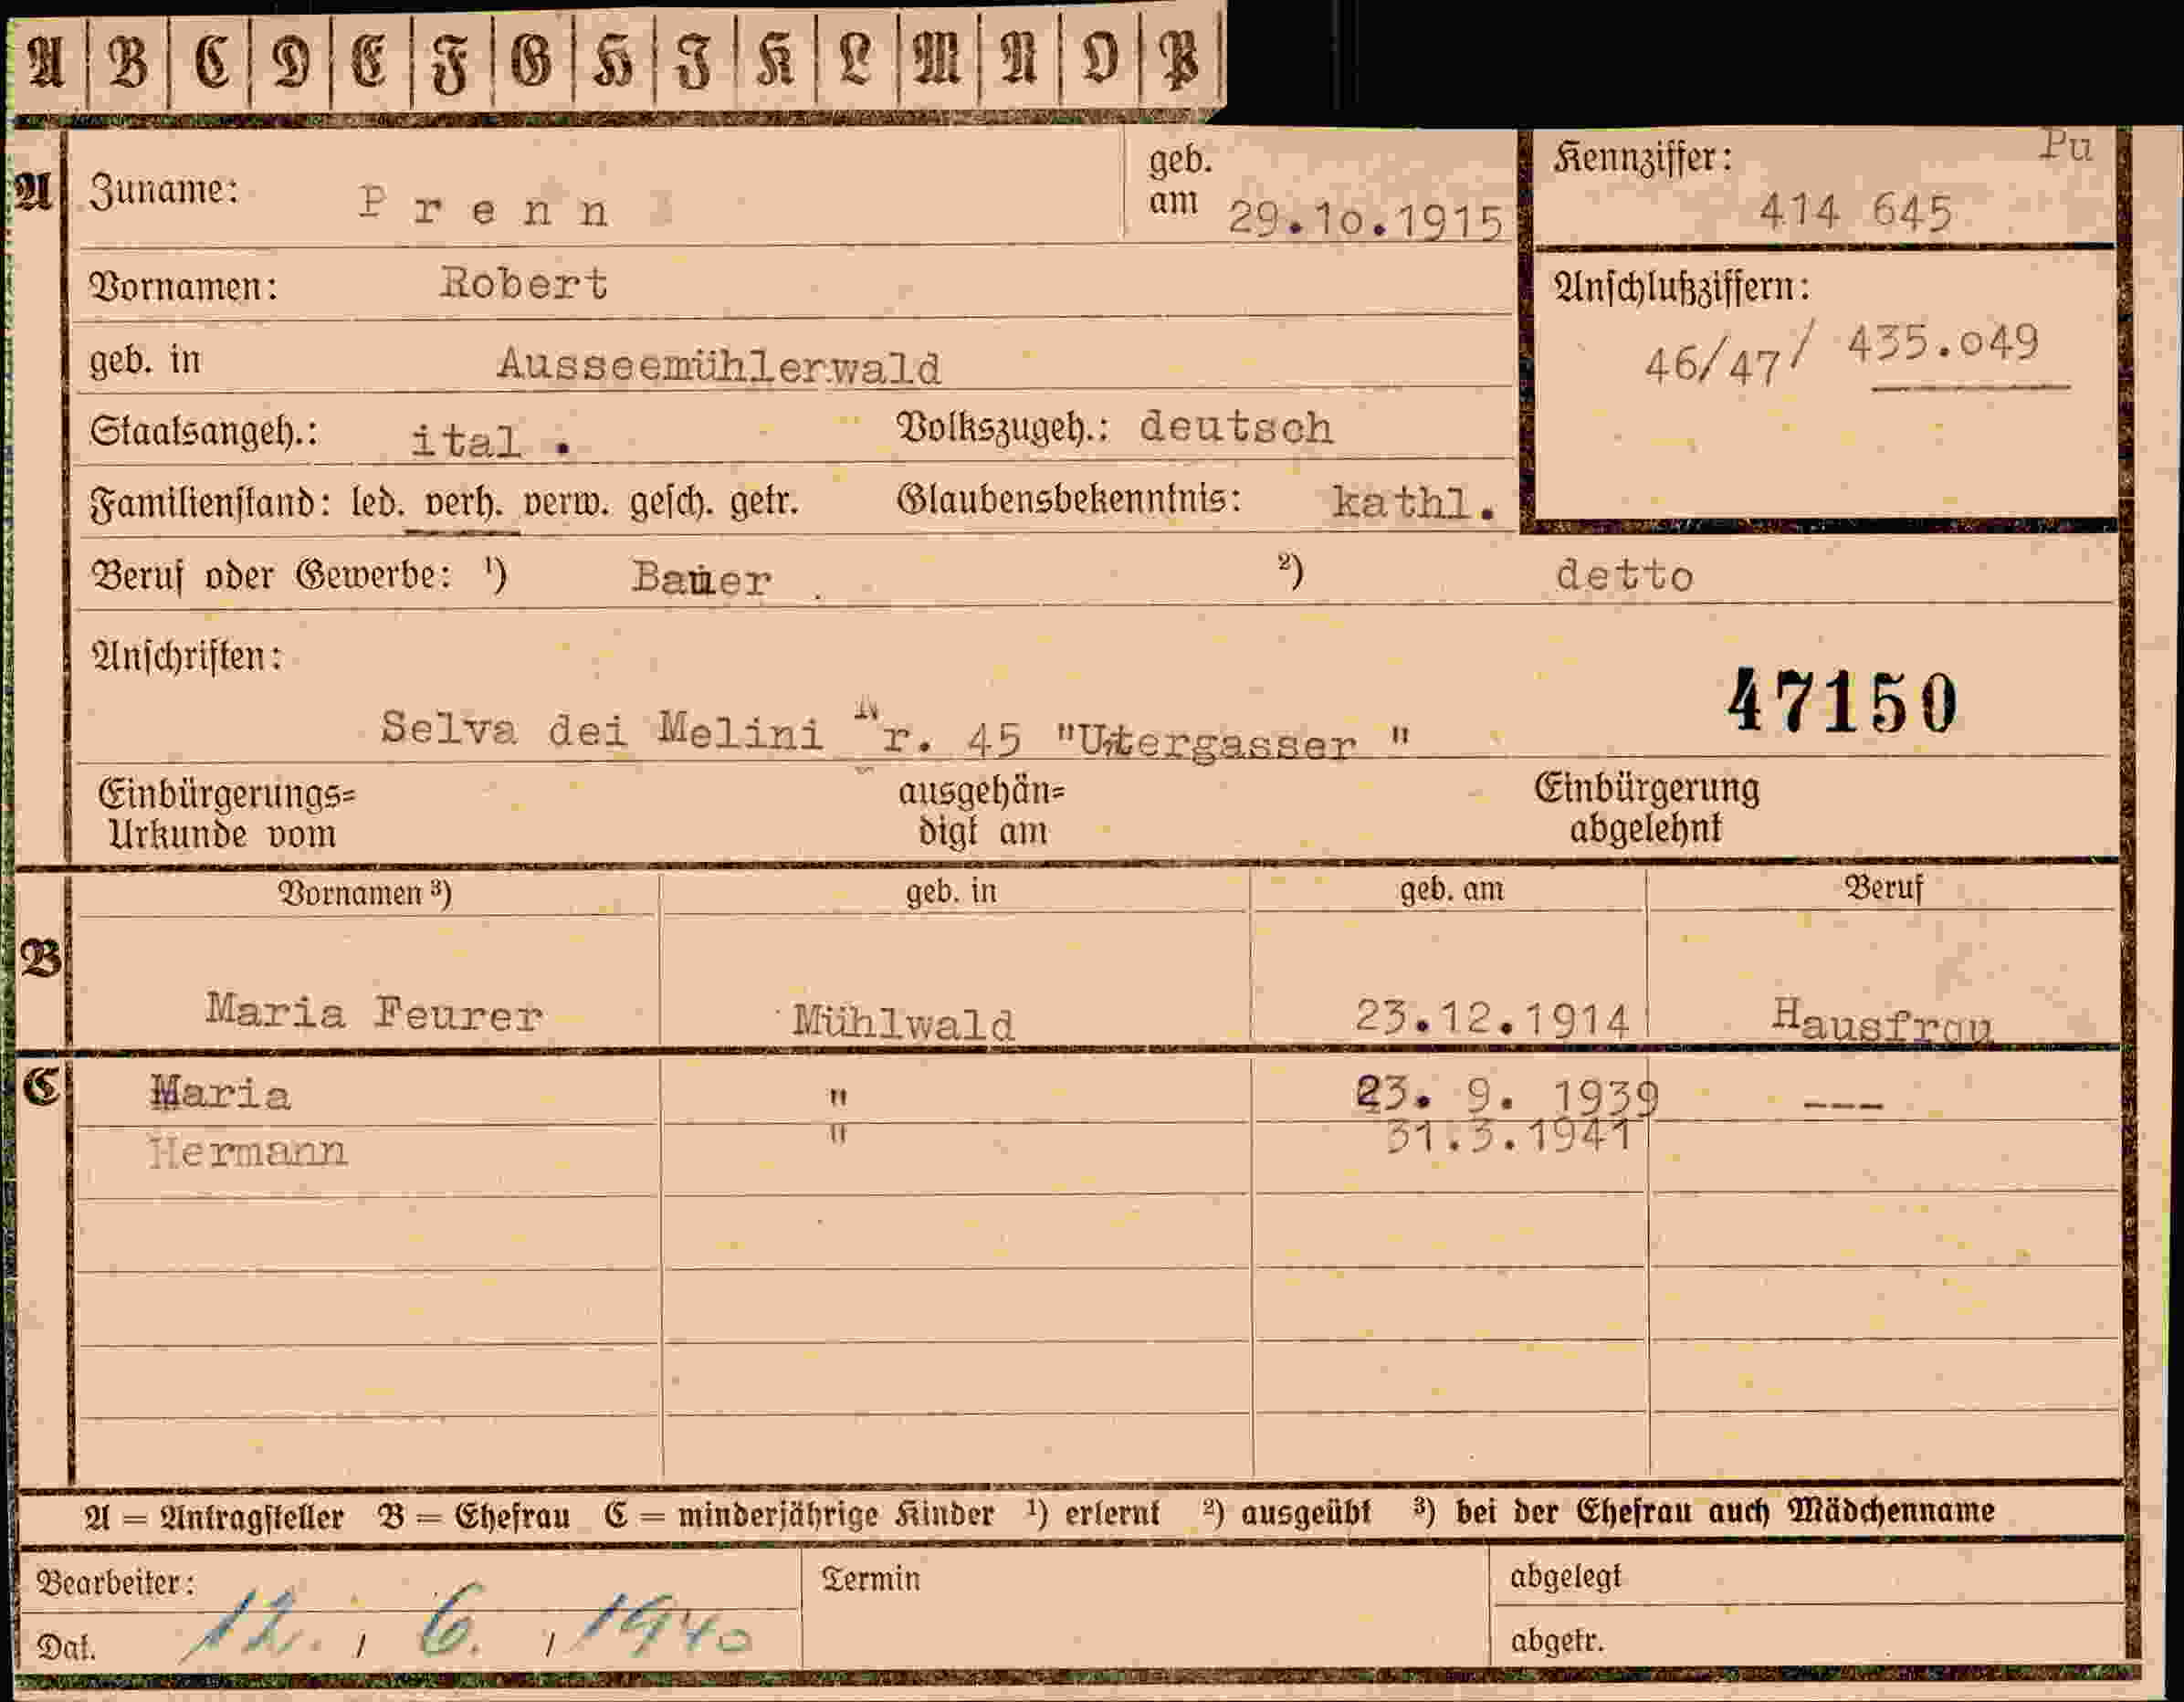 A B C D E F G H I K L M N O P
A Zuname: Prenn geb. am 29.10.1915 Kennziffer: Pu
414 645
Vornamen: Robert Anschlußziffern:
46/47/ 435.049
geb. in Ausseemühlerwald
Staatsangeh.: ital. Volkszugeh.: deutsch
Familienstand: led. verh. verw. gesch. getr. Glaubensbekenntnis: kathl.
Beruf oder Gewerbe: ¹) Bauer ²) detto
Anschriften:
47150
Selva dei Melini Nr. 45 "Utergasser"
Einbürgerungs= ausgehän= Einbürgerung
Urkunde vom digt am abgelehnt
Vornamen ³) geb. in geb. am Beruf
B
Maria Feurer Mühlwald 23.12.1914 Hausfrau
C Maria " 23. 9. 1939 ---
Hermann " 31.3.1941
A = Antragsteller B = Ehefrau C = minderjährige Kinder ¹) erlernt ²) ausgeübt ³) bei der Ehefrau auch Mädchenname
Bearbeiter: Termin abgelegt
Dat. 12. / 6. / 1940 abgetr.